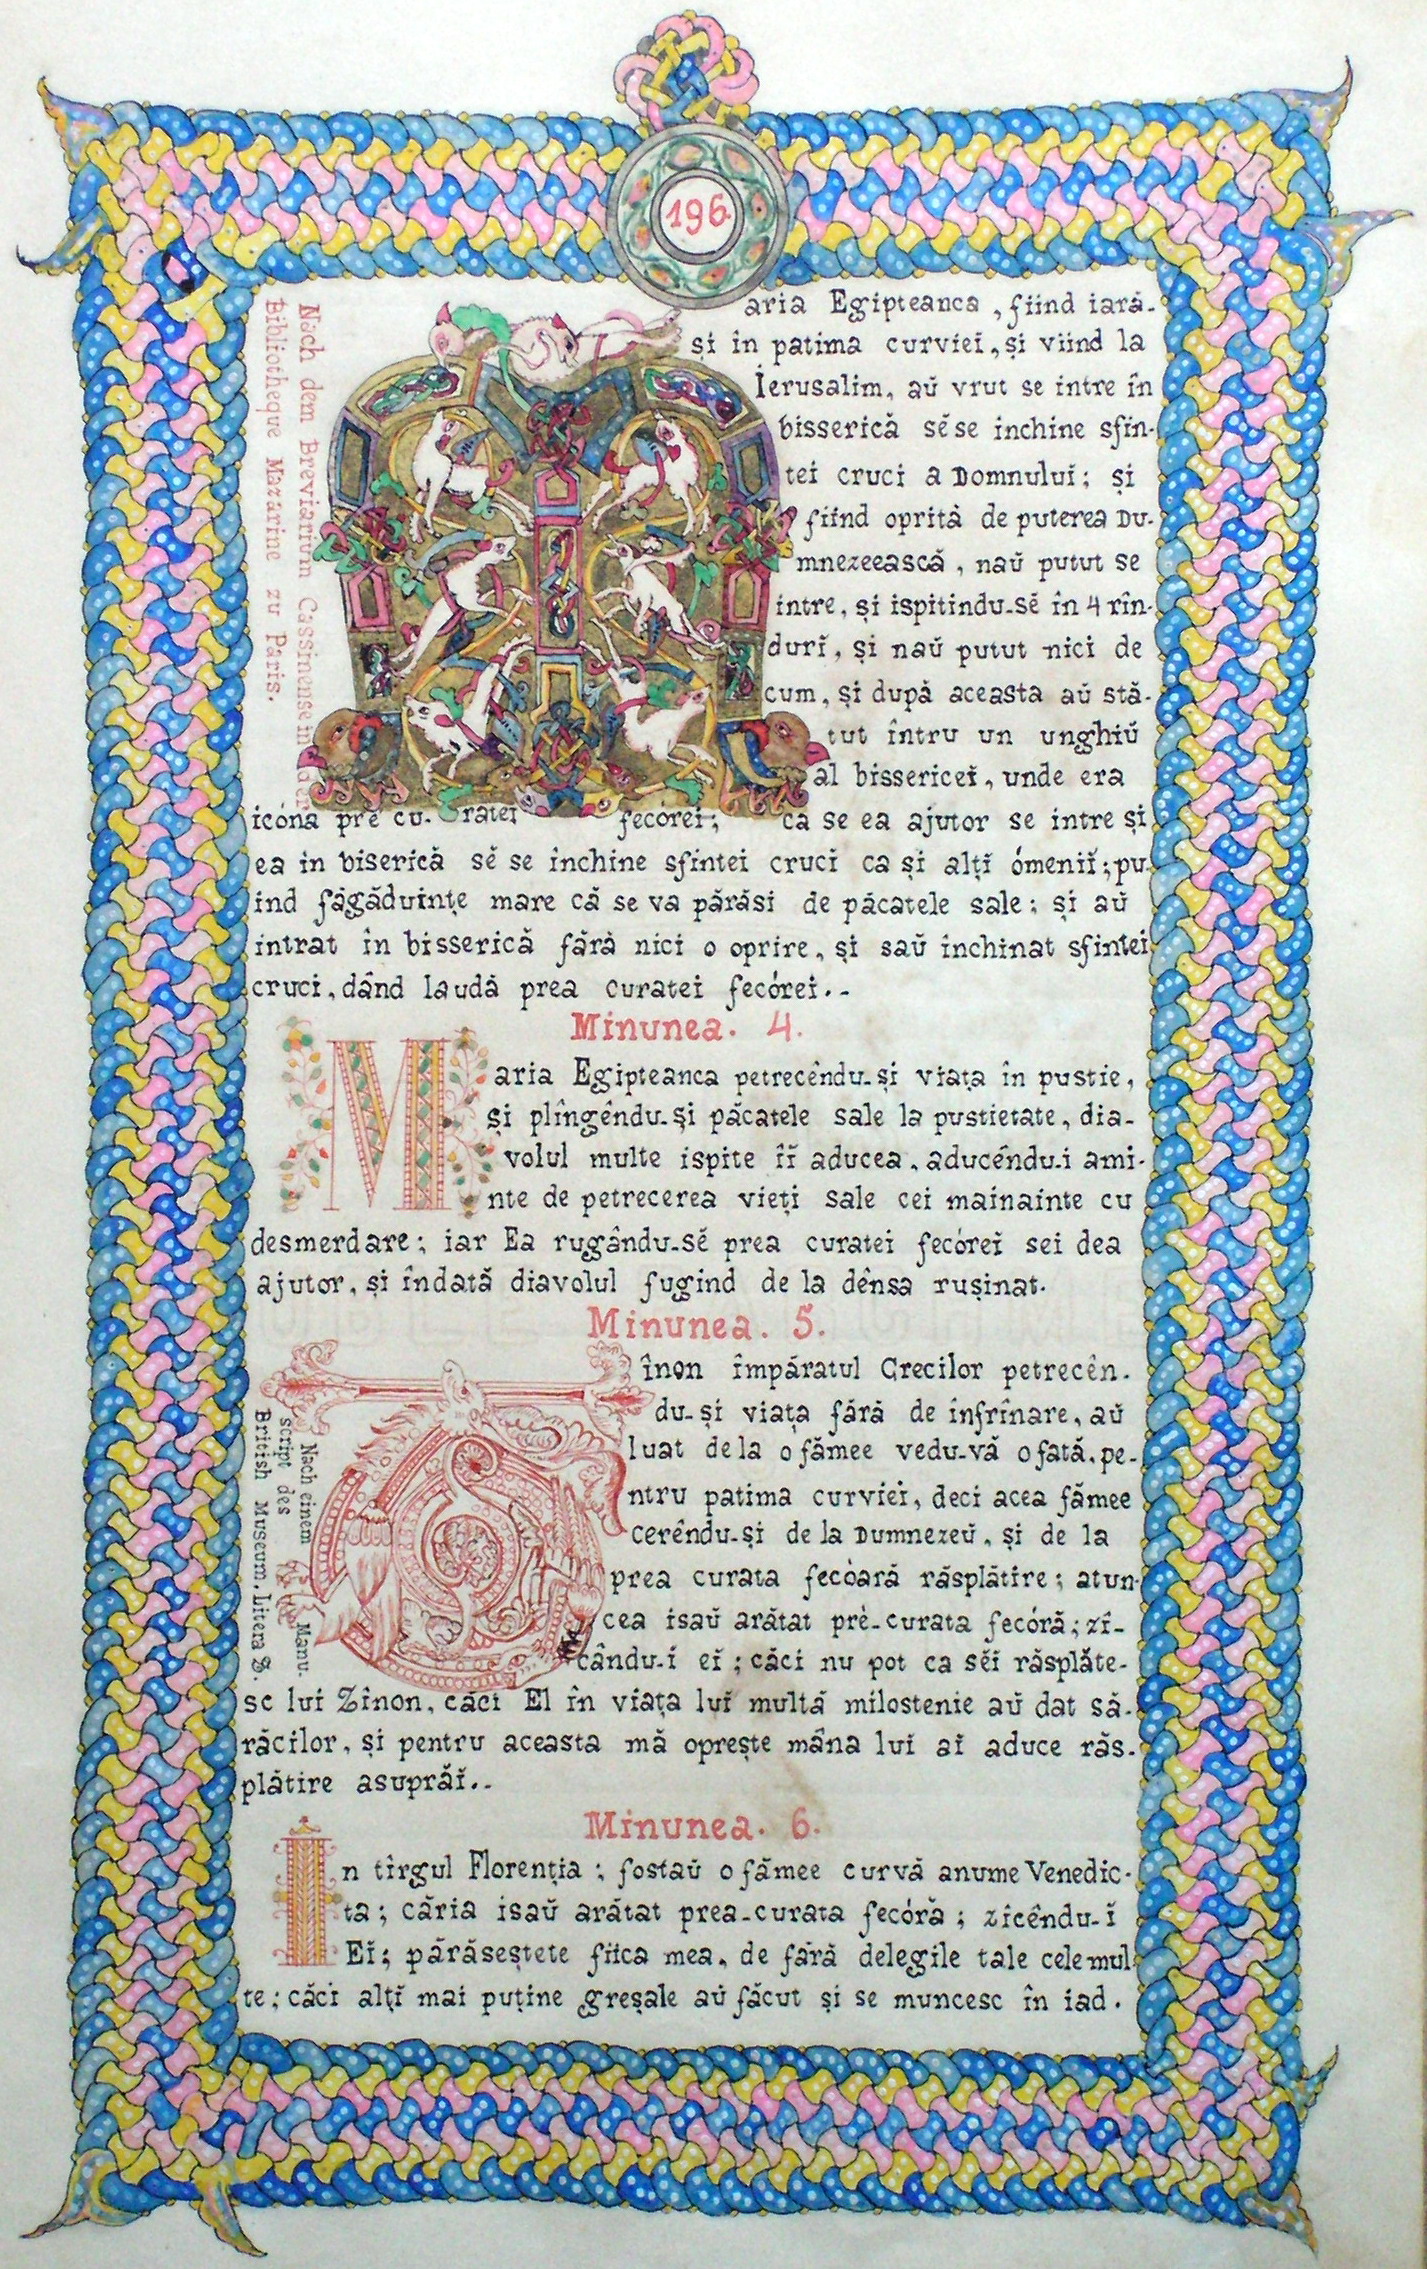 196.
aria Egipteanca, fiind iară-
și în patima curvieĭ, și viind la
Ierusalim, aŭ vrut se intre în
bisserică sĕ se inchine sfin-
tei cruci a Domnuluĭ; și
fiind oprită de puterea Du-
mnezeească, naŭ putut se
intre, și ispitindu-sĕ în 4 rîn-
durĭ, și naŭ putut nici de
cum, și după aceasta aŭ stă-
tut întru un unghiŭ
al bissericeĭ, unde era
icóna pré cu- rateĭ fecóreĭ; ca se ea ajutor se intre și
ea in biserică sĕ se închine sfintei cruci ca și alțĭ ómeniĭ; pu-
ind făgăduințe mare că se va părăsi de păcatele sale; și aŭ
intrat în bisserică fără nici o oprire, și saŭ închinat sfintei
cruci, dând laudă prea curatei fecóreĭ..-
Minunea. 4.
Maria Egipteanca petrecêndu-și viața în pustie,
și plîngêndu-și păcatele sale la pustietate, dia-
volul multe ispite îĭ aducea, aducêndu-i ami-
nte de petrecerea viețĭ sale cei mainainte cu
desmerdare; iar Ea rugându-sĕ prea curatei fecóreĭ sei dea
ajutor, și îndată diavolul fugind de la dênsa rușinat.
Minunea. 5.
înon împăratul Grecilor petrecên-
du-și viața fără de infrînare, aŭ
luat de la o fămee vedu-vă o fată, pe-
ntru patima curvieĭ, deci acea fămee
cerêndu-și de la Dumnezeŭ, și de la
prea curata fecóară răsplătire; atun-
cea isaŭ arătat pré-curata fecóră; zi-
cându-i eĭ; căci nu pot ca sĕĭ răsplăte-
sc lui Zînon, căci El în viața luĭ multă milostenie aŭ dat să-
răcilor, și pentru aceasta mă oprește mâna luĭ aĭ aduce răs-
plătire asuprăĭ..
Minunea. 6.
In tîrgul Florenția; fostaŭ o fămee curvă anume Venedic-
ta; căria isaŭ arătat prea-curata fecóră; zicêndu-ĭ
Eĭ; părăseștete fiica mea, de fără delegile tale cele mul-
te; căci alțĭ mai puține greșale aŭ făcut și se muncesc în iad.
Nach dem Breviarium Cassinense in der
Bibliotheque Mazarine zu Paris.
Nach einem Manu.
script des
British Museum. Litera S.